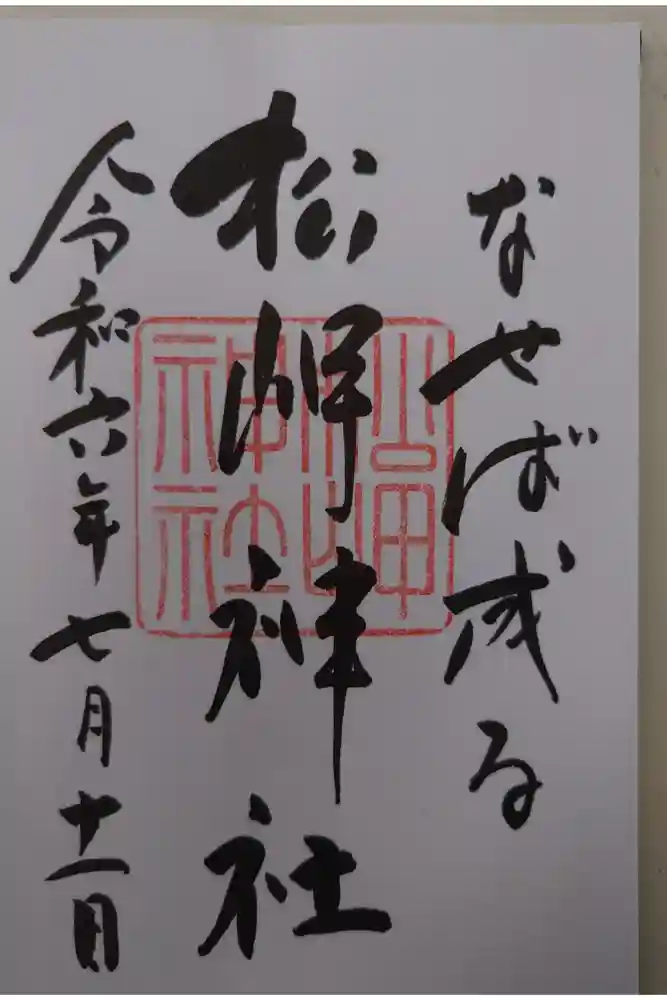 なせば成る
松岬神社
令和六年七月十一日
松岬
神社